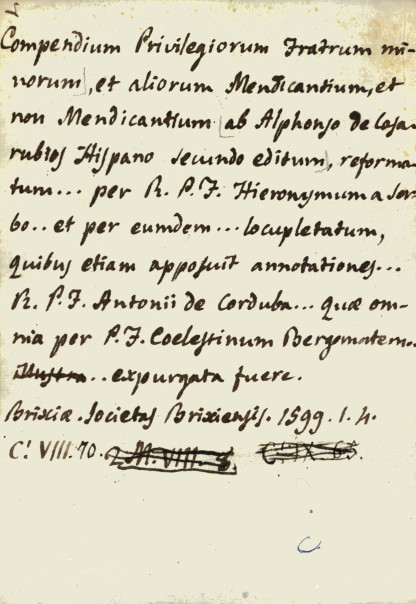 Compendium Privilegiorum Fratrum mi-
norum, et aliorum Mendicantium, et
non Mendicantium [ab Alphonso de Casa-
rubios Hispano secundo editum, reforma-
tum... per R. P. F. Hieronymum a Sor-
bo.. et per eumdem... locupletatum,
quibus etiam apposuit annotationes...
R. P. F. Antonii de Corduba... quæ om-
nia per P. F. Coelestinum Bergomatem..
.. expurgata fuere.
Brixiæ. Societas Brixiensis. 1599. 1. 4.
C! VIII. 70. 2 M. VIII. C! IX 63.